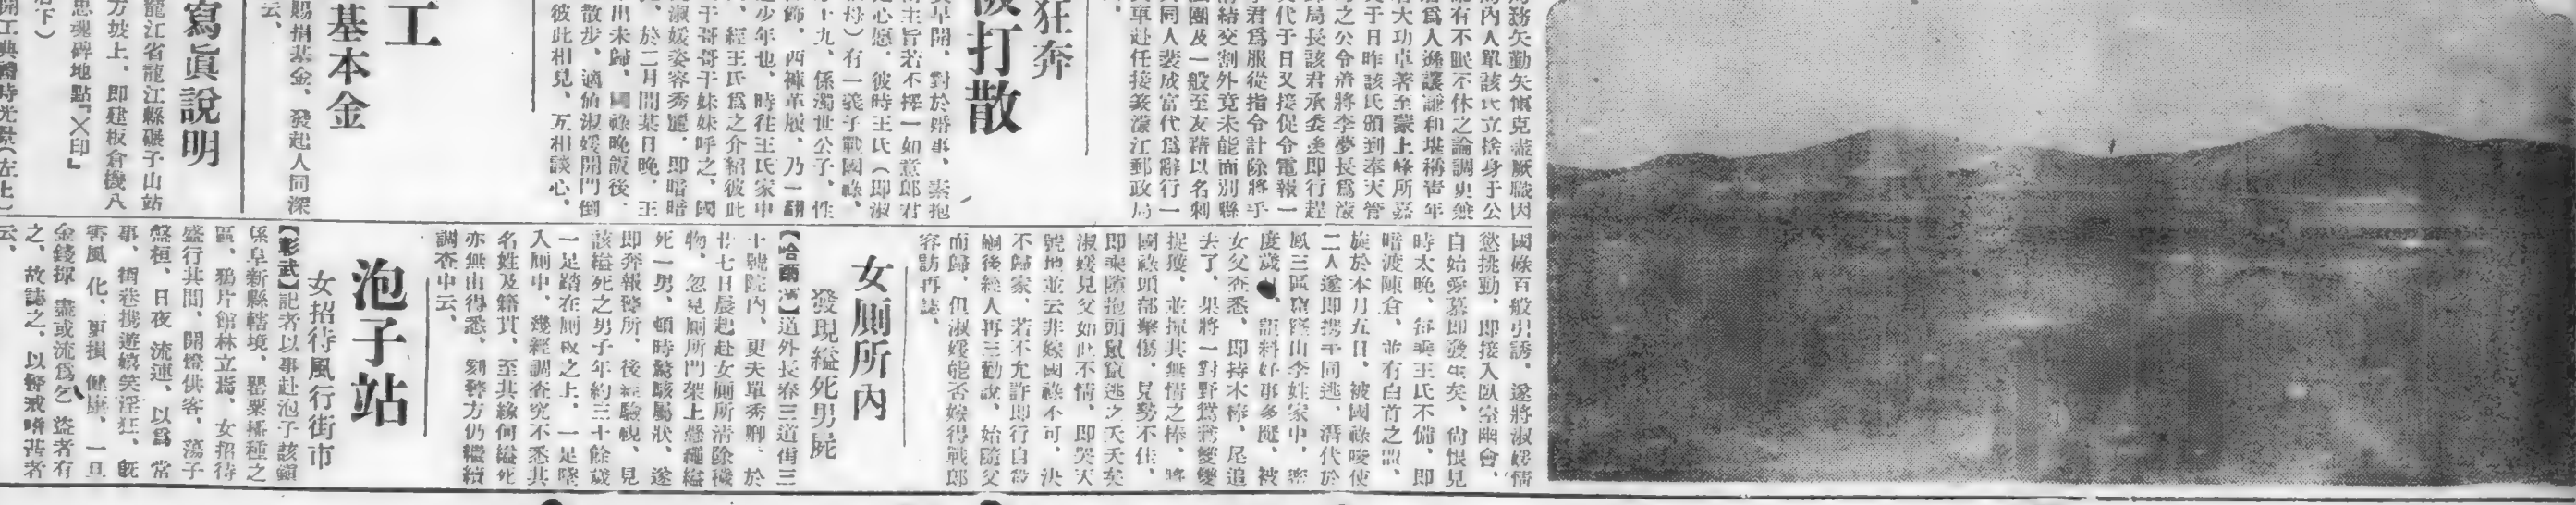 務矢勤矢慎克盡厥職因
局內人單該氏立捨身于公
有不眠不休之論調更兼
為人遜讓謙和堪稱青年
大功卓著至蒙上峰所嘉
于日昨該氏頒到奉天管
之公令濟將李夢長爲濛
局長該君承委後即行趕
代于日又接促令電報一
君爲服從指令計除將手
清結交割外竟未能面別縣
團及一般至友藉以名刺
同人裝成富代爲辭行一
車赴任接篆濛江郵政局
狂奔
被打散
早開、對於婚事、素抱
主旨若不擇一如意郎君
心愿、彼時王氏(即淑
母)有一義子戰國祿、
十九、係濁世公子、性
飾、西褲革履、乃一翩
少年也、時往王氏家中
、經王氏爲之介紹彼此
干哥哥干妹妹呼之、國
淑媛姿容秀麗、即暗暗
、於二月間某日晚、王
出未歸、國祿晚飯後、
散步、適値淑媛開門倒
彼此相見、互相談心、
國祿百般引誘、遂將淑媛情
慾挑動、即接入臥室幽會、
自始愛慕即發生矣、尙恨見
時太晚、每乘王氏不備、即
暗渡陳倉、並有白首之盟、
旋於本月五日、被國祿唆使
二人遂即携手同逃、潛代於
鳳三區窟窿山李姓家中、密
度歲、詎料好事多磨、被
女父查悉、即持木棒、尾追
去了、果將一對野鴛鴦雙雙
捉獲、並揮其無情之棒、將
國祿頭部擊傷、見勢不佳、
即乘隙抱頭鼠竄逃之夭夭矣
淑媛見父如此不情、即哭天
號地並云非嫁國祿不可、決
不歸家、若不允許即行自殺
嗣後經人再三勸說、始隨父
而歸、但淑媛能否嫁得戰郎
容訪再誌、
女厠所內
發現縊死男屍
【哈爾濱】道外長春三道街三
十號院內、更夫單秀卿、於
廿七日晨起赴女厠所清除穢
物、忽見厠所門架上懸繩縊
死一男、頓時驚駭萬狀、遂
即奔報警所、後經驗視、見
該縊死之男子年約三十餘歲
一足踏在厠板之上、一足墜
入厠中、幾經調查究不悉其
名姓及籍貫、至其緣何縊死
亦無由得悉、刻警方仍繼續
調查中云、
工
基本金
賜捐基金、發起人同深
云、
寫眞說明
龍江省龍江縣碾子山站
方坡上、即建板倉機八
忠魂碑地點『×印』
下)
開工典禮時光景(左上)
泡子站
女招待風行街市
【彰武】記者以事赴泡子該鎭
係阜新縣轄境、罌粟播種之
區、鴉片館林立焉、女招待
盛行其間、開燈供客、蕩子
盤桓、日夜流連、以爲常
事、街巷携遊嬉笑淫狂、旣
害風化、更損健康、一旦
金錢揮盡或流爲乞盜者有
之、故誌之、以警戒嗜舊者
云、